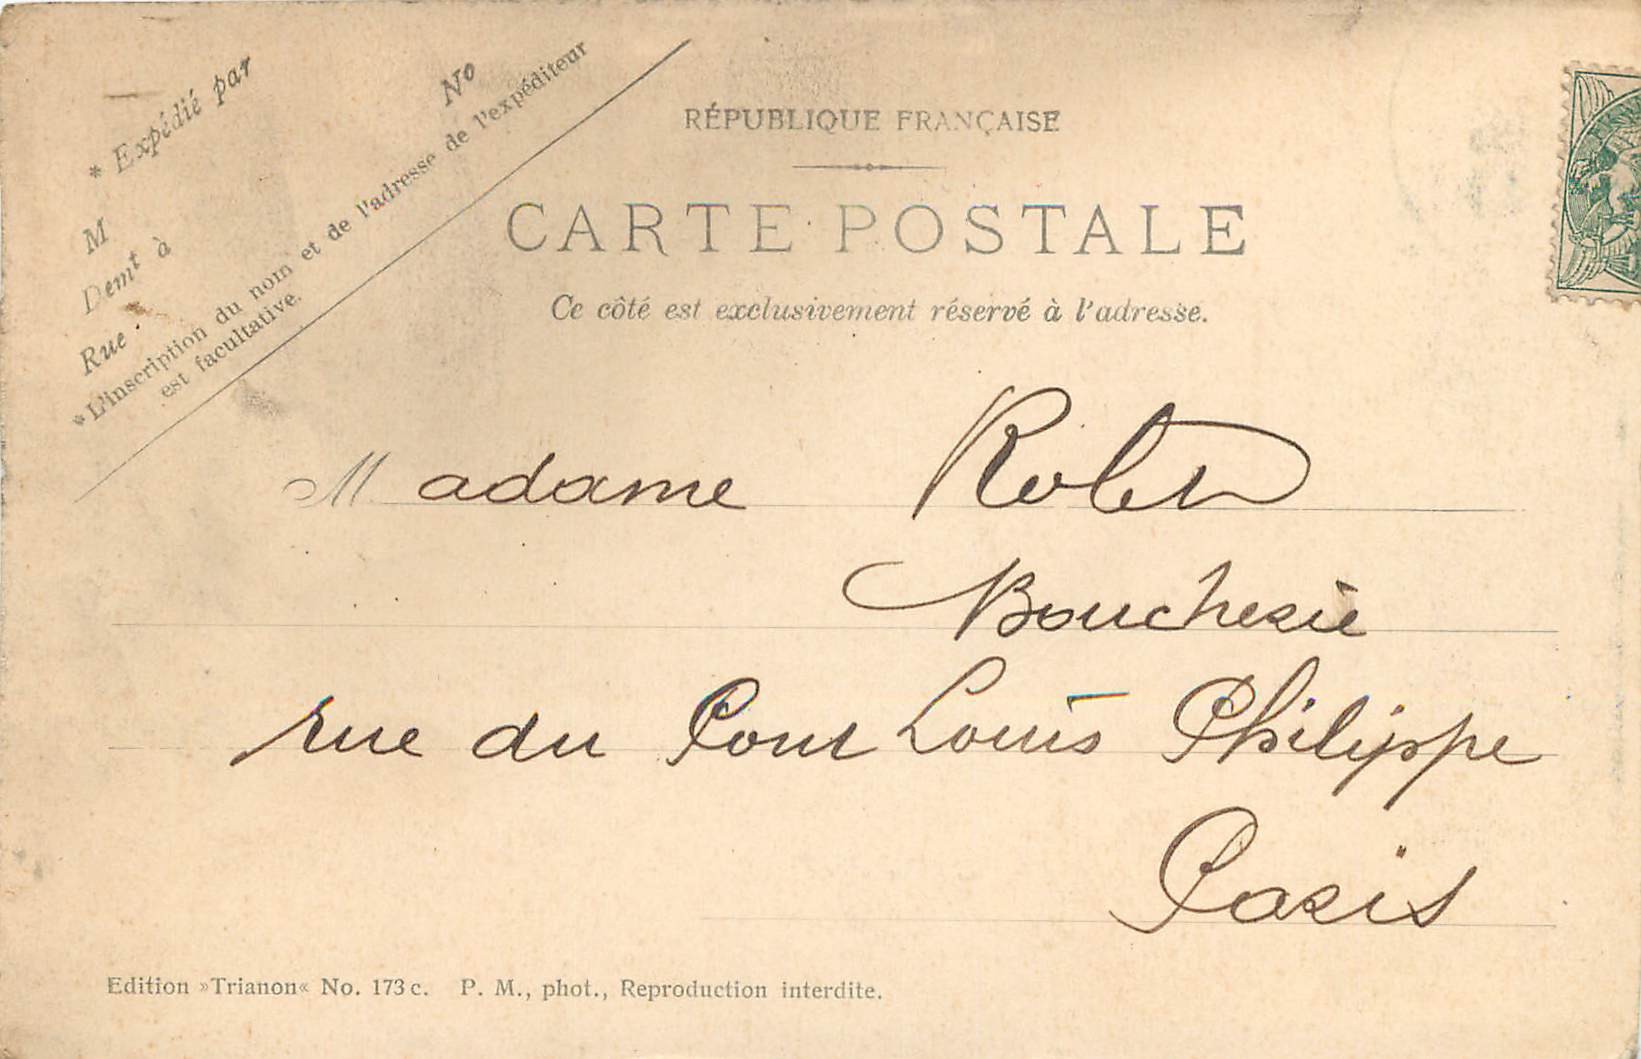 * Expédié par
No
M
Demt à
Rue
* L'inscription du nom et de l'adresse de l'expéditeur
est facultative.
RÉPUBLIQUE FRANÇAISE
CARTE POSTALE
Ce côté est exclusivement réservé à l'adresse.
Madame
Boucherie
rue du Pont Louis Philippe
Paris
Edition »Trianon« No. 173 c. P. M., phot., Reproduction interdite.